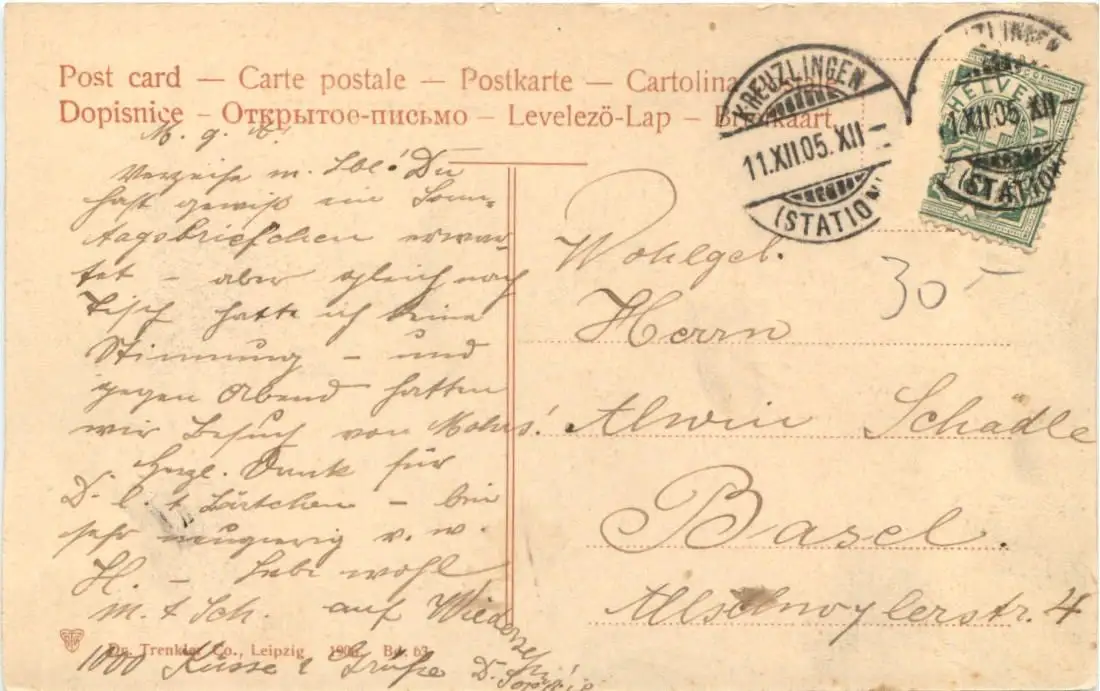 Post card — Carte postale — Postkarte — Cartolina
Dopisnice — Открытое-письмо — Levelezö-Lap —
KREUZLINGEN
11.XII.05. XII
(STATION)
HELVETIA
1.XII.05 XII
(STATION
M. g.
Verzeihe m. Lbl! Du
hast gewiß ein Sonn-
tagsbriefchen erwar-
tet – aber gleich nach
Tisch hatte ich keine
Stimmung – und
gegen Abend hatten
wir Besuch von Mohrs!
Herzl. Dank für
D. l. Kärtchen – bin
sehr neugierig v. w.
H. – Lebe wohl
m. t. Sch. auf Wiederseh
1000 Küsse & Grüße D.
Wohlgeb.
Herrn
Alwin Schädle
Basel.
Allschwylerstr. 4
30 –
Dr. Trenkler Co., Leipzig 63